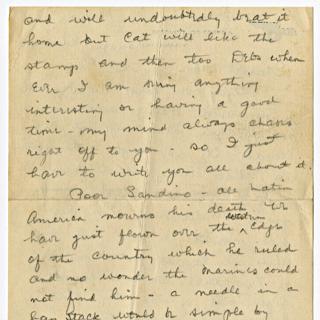 and will undoubtedly beat it
home but Cat will like the
stamp and then too Debs when
Ever I am doing anything
interesting or having a good
time - my mind always chases
right off to you - so I just
have to write you all about it.
Poor Sandino - all Latin
America mourns his death We
have just flown over the western Edge
of the country which he ruled
and no wonder the Marines could
not find him - a needle in a
hay stack would be simple by